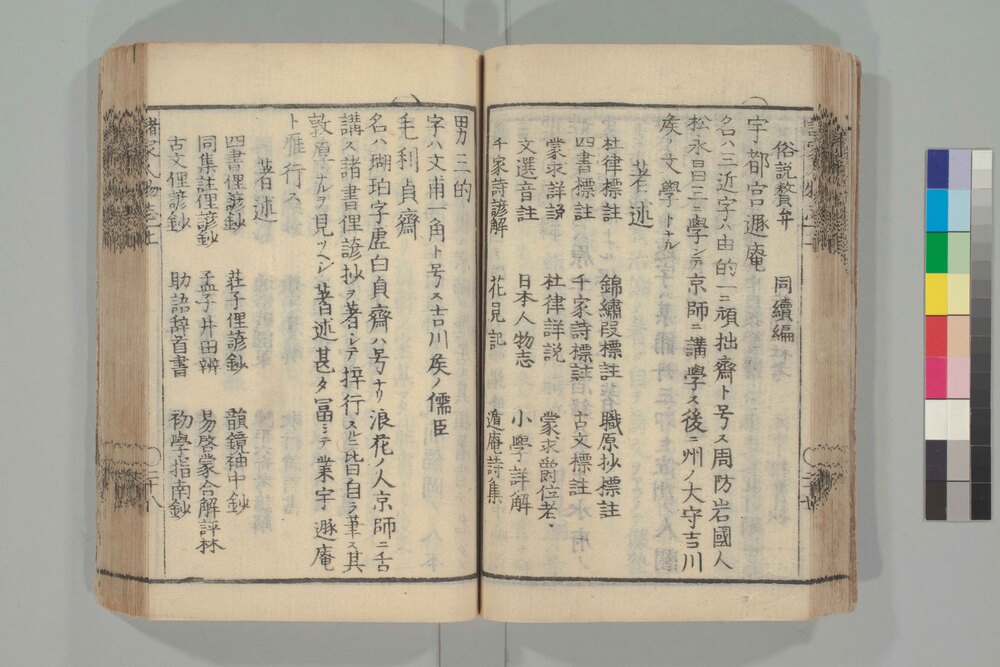 俗説贅弁　同續編
宇都宮遯庵
名ハ三近字ハ由的一ニ頑拙齋ト号ス周防岩國人
松永昌三ニ學シテ京師ニ講學ス後ニ州ノ大守吉川
矦ノ文學トナル
著述
杜律標註　錦繡段標註　職原抄標註
四書標註　千家詩標註　古文標註
蒙求詳説　杜律詳説　蒙求爵位考
文選音註　日本人物志　小學詳解
千家詩諺解　花見記　遁庵詩集
男三的
字ハ文甫一角ト号ス吉川矦ノ儒臣
毛利貞齋
名ハ瑚珀字虚白貞齋ハ号ナリ浪花ノ人京師ニ舌
講ス諸書俚諺抄ヲ著シテ梓行スルニ皆自ラ筆ス其
敦厚ナルヿ見ツヘシ著述甚タ冨ミテ業宇遯庵
ト雁行ス
著述
四書俚諺鈔　莊子俚諺鈔　韻鏡袖中鈔
同集註俚諺鈔　孟子井田辨　易啓蒙合解評林
古文俚諺鈔　助語辞首書　初學指南鈔
諸家人物志　上
二十八